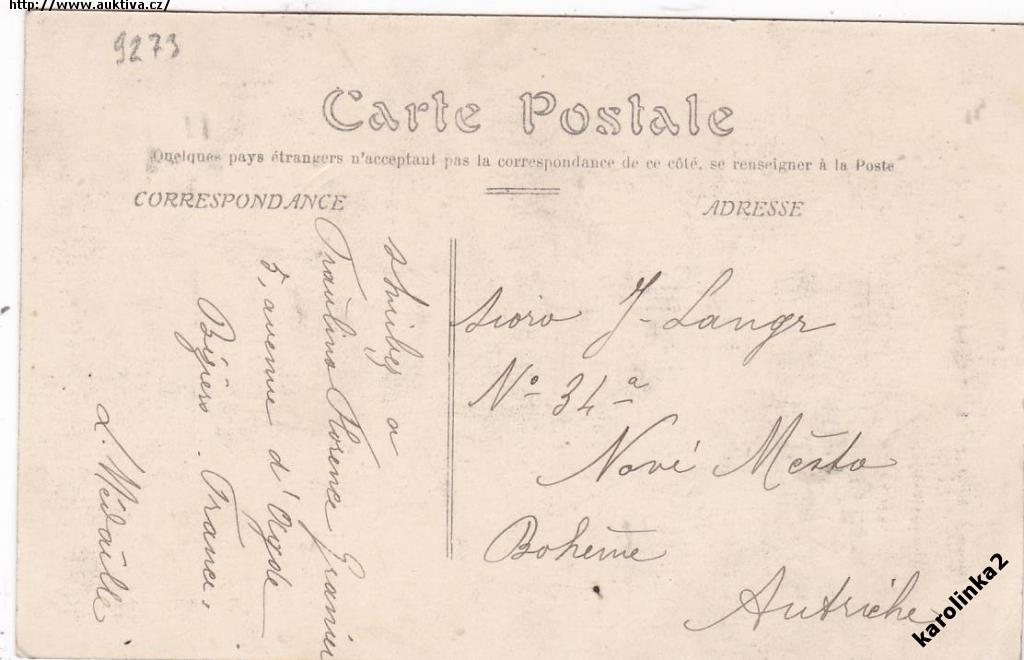 http://www.auktiva.cz/
9273
Carte Postale
Quelques pays étrangers n'acceptant pas la correspondance de ce côté, se renseigner à la Poste
CORRESPONDANCE
ADRESSE
a
Fraulino Florence Granier
5, avenue d'Agde
Béziers. France.
L. Médaille
sioro J. Langr
No 34a
Nové Mésto
Bohême
Autriche
karolinka2